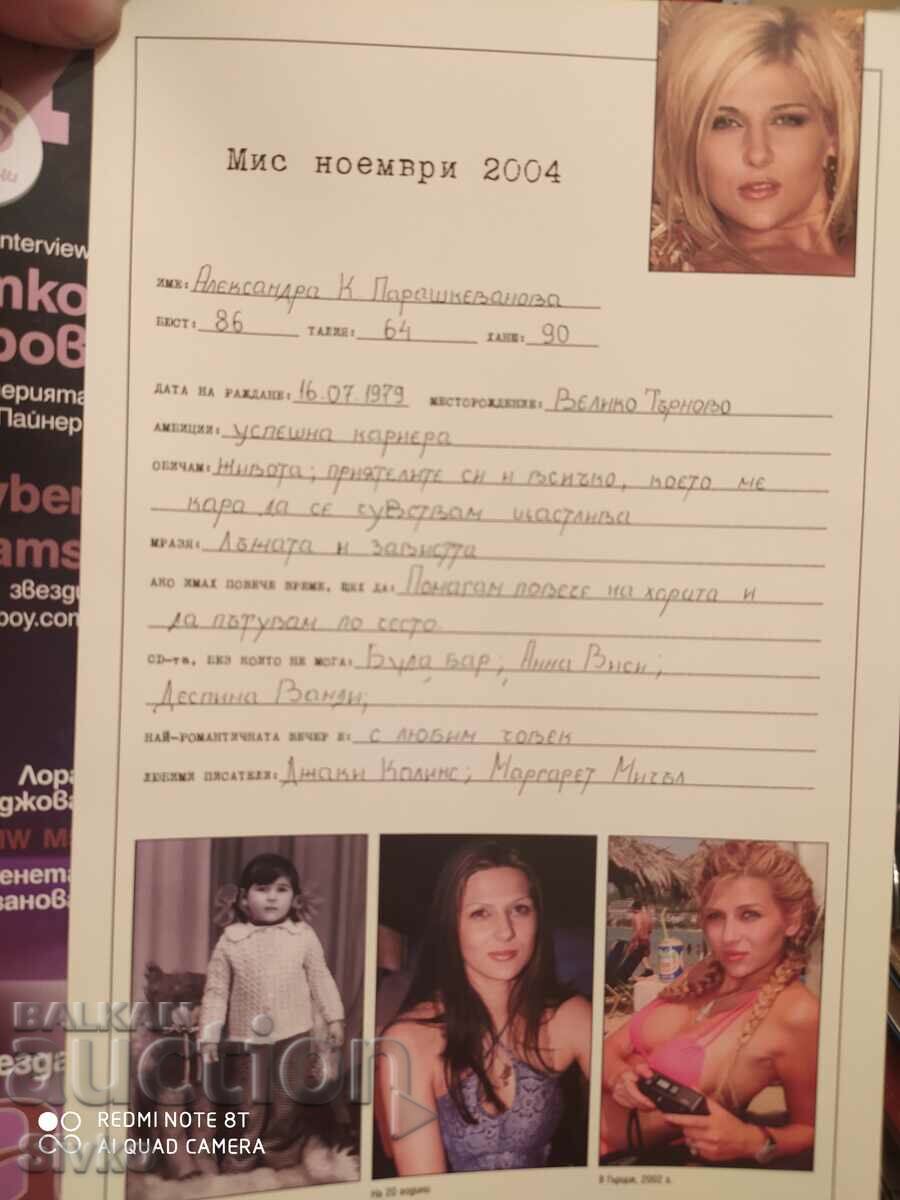 Мис ноември 2004
ИМЕ: Александра К. Парашкеванова
БЮСТ: 86 ТАЛИЯ: 64 ХАНШ: 90
ДАТА НА РАЖДАНЕ: 16.07.1979 МЕСТОРОЖДЕНИЕ: Велико Търново
АМБИЦИИ: успешна кариера
ОБИЧАМ: живота; приятелите си и всичко, което ме
кара да се чувствам щастлива
МРАЗЯ: Лъжата и завистта
АКО ИМАХ ПОВЕЧЕ ВРЕМЕ, ЩЯХ ДА: Помагам повече на хората и
да пътувам по често
CD-та, БЕЗ КОИТО НЕ МОГА: Буда бар; Анна Виси;
Деспина Ванди;
НАЙ-РОМАНТИЧНАТА ВЕЧЕР Е: с любим човек
ЛЮБИМИ ПИСАТЕЛИ: Джаки Колинс; Маргарет Мичъл
На 20 години
В Гърция, 2002 г.
nterview
тко
ров
ерията
Пайнер
yber
ams
звезди
boy.com
Лора
джова
енета
занова
езда
BALKAN
auction
sivko
REDMI NOTE 8T
AI QUAD CAMERA